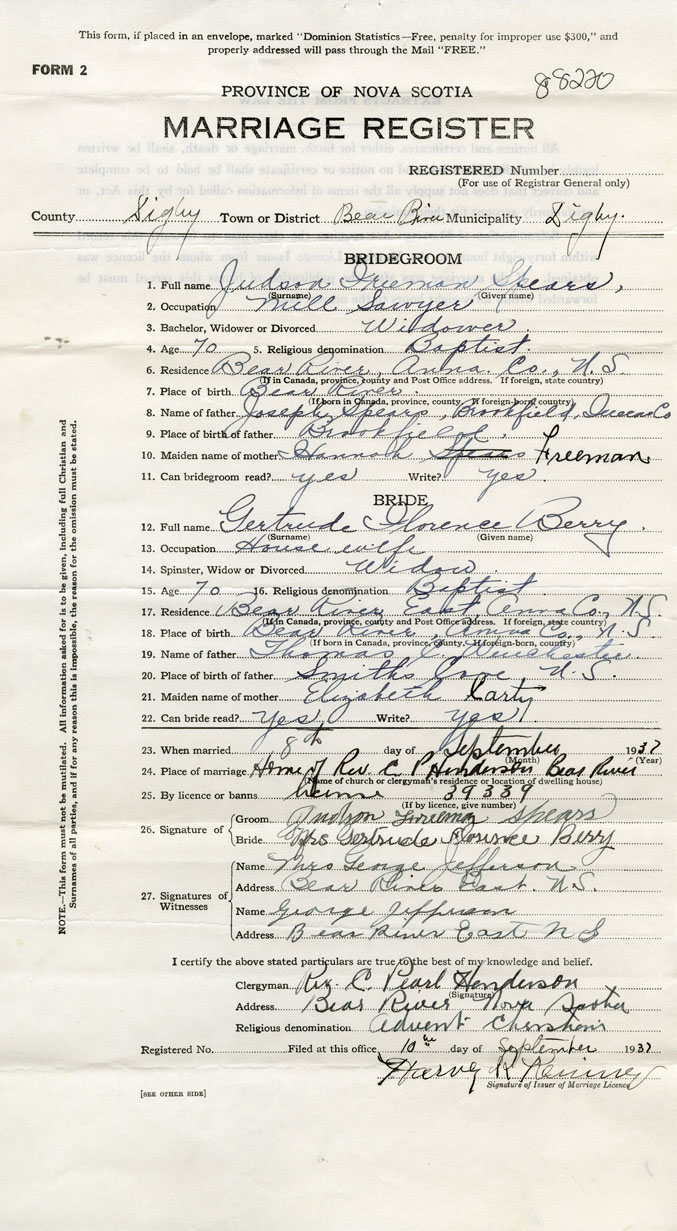 This form, if placed in an envelope, marked "Dominion Statistics—Free, penalty for improper use $300," and
properly addressed will pass through the Mail "FREE."
FORM 2
88220
PROVINCE OF NOVA SCOTIA
MARRIAGE REGISTER
REGISTERED Number
(For use of Registrar General only)
County Digby Town or District Bear River Municipality Digby.
BRIDEGROOM
1. Full name Judson Freeman Spears,
(Surname) (Given name)
2. Occupation Mill Sawyer
3. Bachelor, Widower or Divorced Widower.
4. Age 70 5. Religious denomination Baptist.
6. Residence Bear River, Anna. Co., N.S.
(If in Canada, province, county and Post Office address. If foreign, state country)
7. Place of birth Bear River.
(If born in Canada, province, county. If foreign-born, country)
8. Name of father Joseph Spears, Brookfield, Queens Co
9. Place of birth of father Brookfield,
10. Maiden name of mother Hannah Spears Freeman
11. Can bridegroom read? yes Write? yes.
BRIDE
12. Full name Gertrude Florence Berry.
(Surname) (Given name)
13. Occupation House wife
14. Spinster, Widow or Divorced Widow.
15. Age 70 16. Religious denomination Baptist
17. Residence Bear River East, Anna Co., N.S.
(If in Canada, province, county and Post Office address. If foreign, state country)
18. Place of birth Bear River, Anna Co., N.S.
(If born in Canada, province, county. If foreign-born, country)
19. Name of father Thomas C. Winchester.
20. Place of birth of father Smiths Cove N.S.
21. Maiden name of mother Elizabeth Carty
22. Can bride read? Yes Write? Yes
23. When married 8th day of September 1937
(Month) (Year)
24. Place of marriage Home of Rev. C P Henderson Bear River
(Name of church or clergyman's residence or location of dwelling house)
25. By licence or banns 39339
(If by licence, give number)
26. Signature of Groom Judson Freeman Spears
Bride Mrs Gertrude Florence Berry
27. Signatures of Witnesses
Name Mrs George Jefferson
Address Bear River East. N.S.
Name George Jefferson
Address Bear River East N S
I certify the above stated particulars are true to the best of my knowledge and belief.
Clergyman Rev. C. Pearl Henderson
(Signature)
Address Bear River Nova Scotia
Religious denomination Advent Christian
Registered No. Filed at this office 10th day of September 1937
Harvey
Signature of Issuer of Marriage Licence
[SEE OTHER SIDE]
NOTE.—This form must not be mutilated. All information asked for is to be given, including full Christian and
Surnames of all parties, and if for any reason this is impossible, the reason for the omission must be stated.